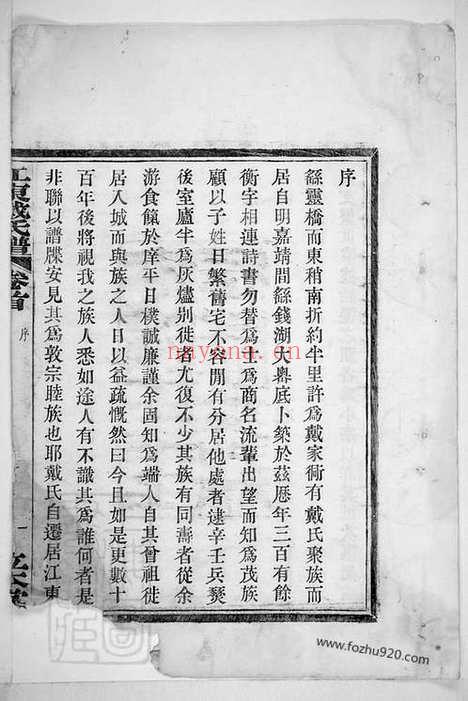 序
繇靈橋而東稍南折約半里許爲戴家衖有戴氏聚族而
居自明嘉靖間繇錢湖大嶴底卜築於茲厯年三百有餘
衡宇相連詩書勿替爲士爲商名流輩出望而知爲茂族
顧以子姓日繁舊宅不容閒有分居他處者逮辛壬兵燹
後室廬半爲灰燼别徙者尤復不少其族有同壽者從余
游食餼於庠平日樸誠廉謹余固知爲端人自其曾祖徙
居入城而與族之人日以益疏慨然曰今且如是更數十
百年後將視我之族人悉如途人有不識其爲誰何者是
非聯以譜牒安見其爲敦宗睦族也耶戴氏自遷居江東
江東戴氏譜
卷首
序
一
nayona.cn
www.fozhu920.com